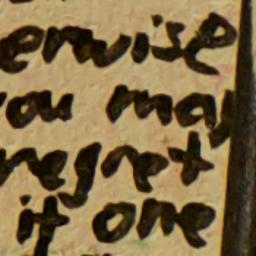 erwise
ou may
regret
it one